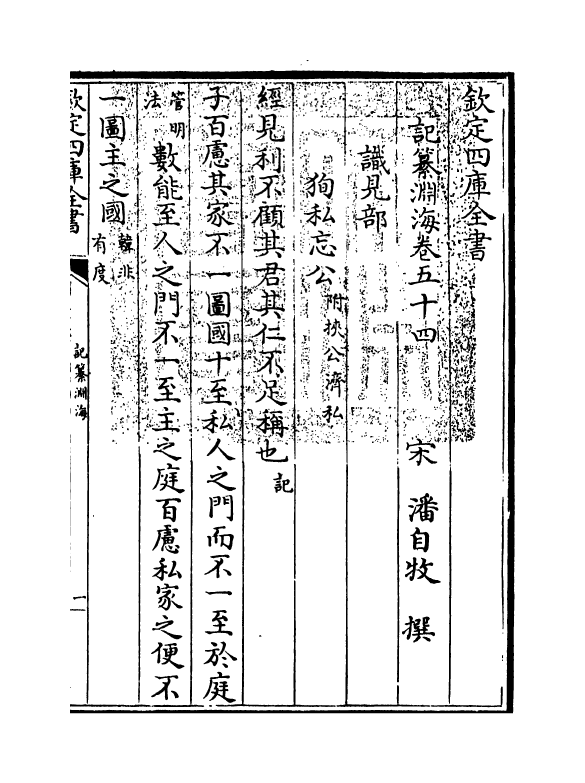 欽定四庫全書
記纂淵海卷五十四　宋　潘自牧　撰
識見部
狥私忘公附挾公濟私
經見利不顧其君其仁不足稱也記
子百慮其家不一圖國十至私人之門而不一至於庭
管明法數能至人之門不一至主之庭百慮私家之便不
一圖主之國韓非有度
欽定四庫全書
記纂淵海
一